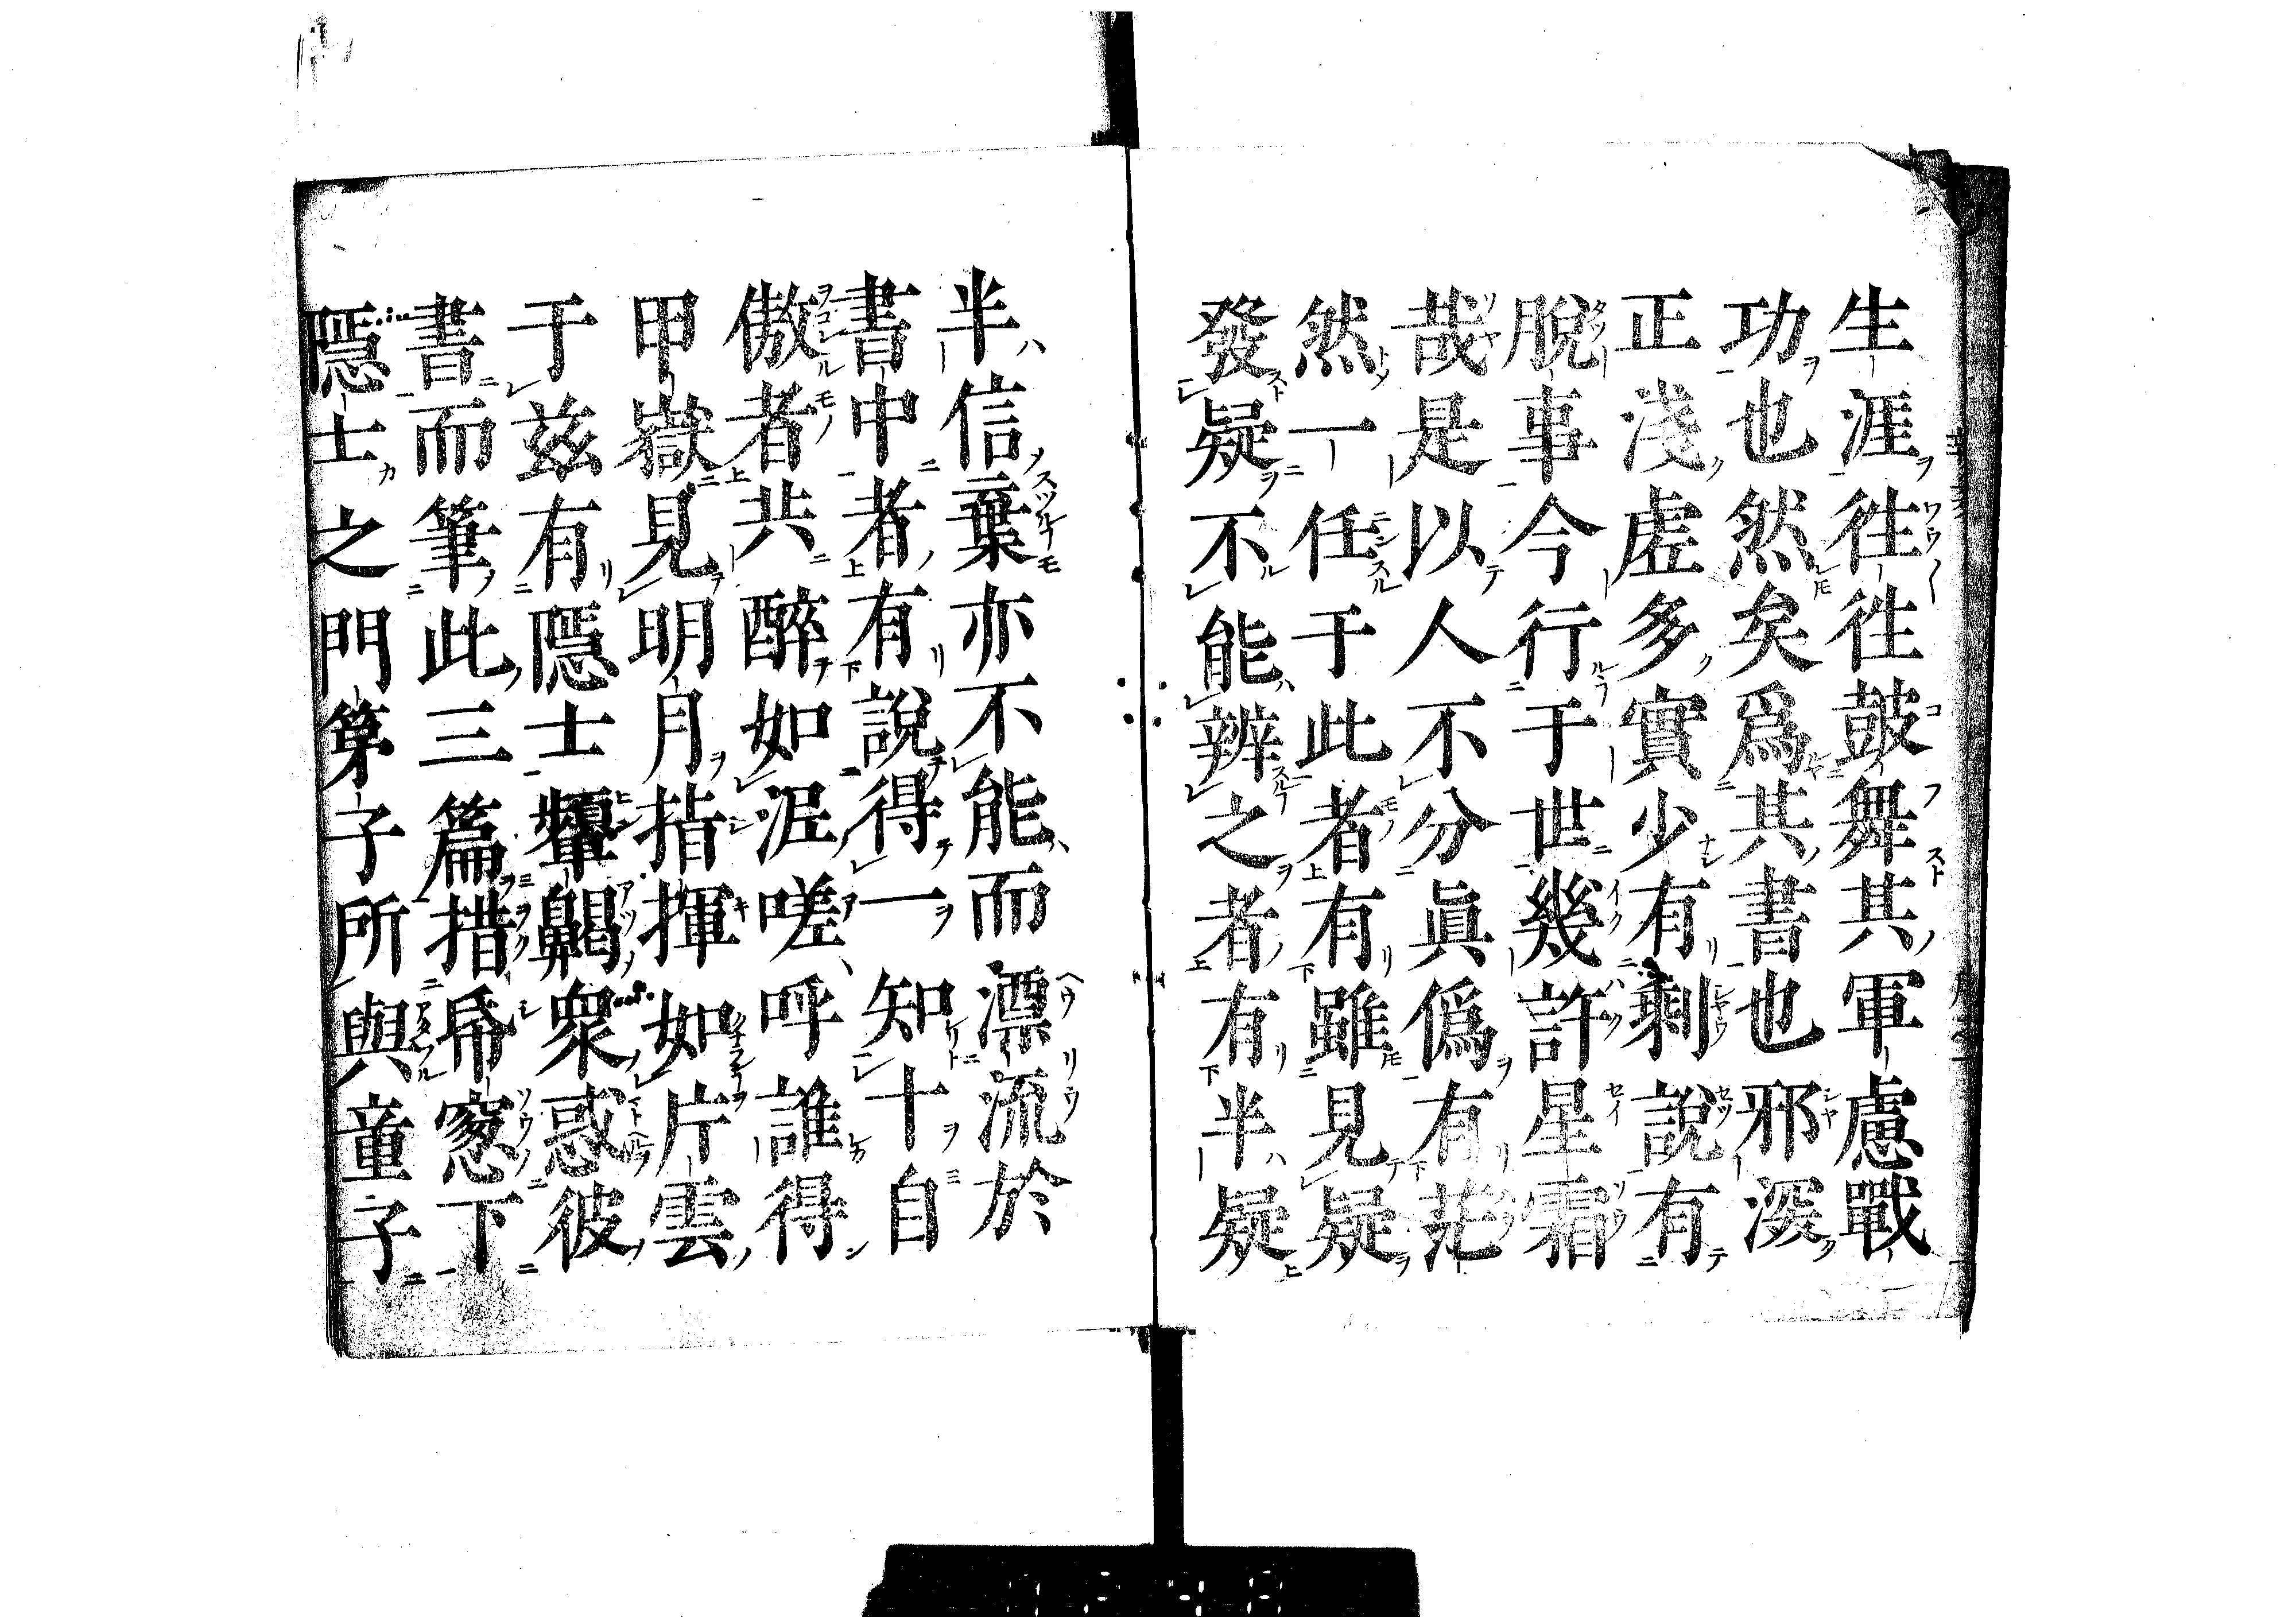 生涯往往鼓舞其軍慮戰
功也然矣爲其書也邪深
正淺虛多實少有剩說有
脫事今行于世幾許星霜
哉是以人不分眞僞有茫
然一任于此者有雖見疑
發疑不能辨之者有半疑
半信棄亦不能而漂流於
書中者有說得一知十自
傲者共醉如泥嗟呼誰得
甲嶽見明月指揮如片雲
于茲有隱士顰齃衆惑彼
書而筆此三篇措帋窓下
隱士之門第子所與童子